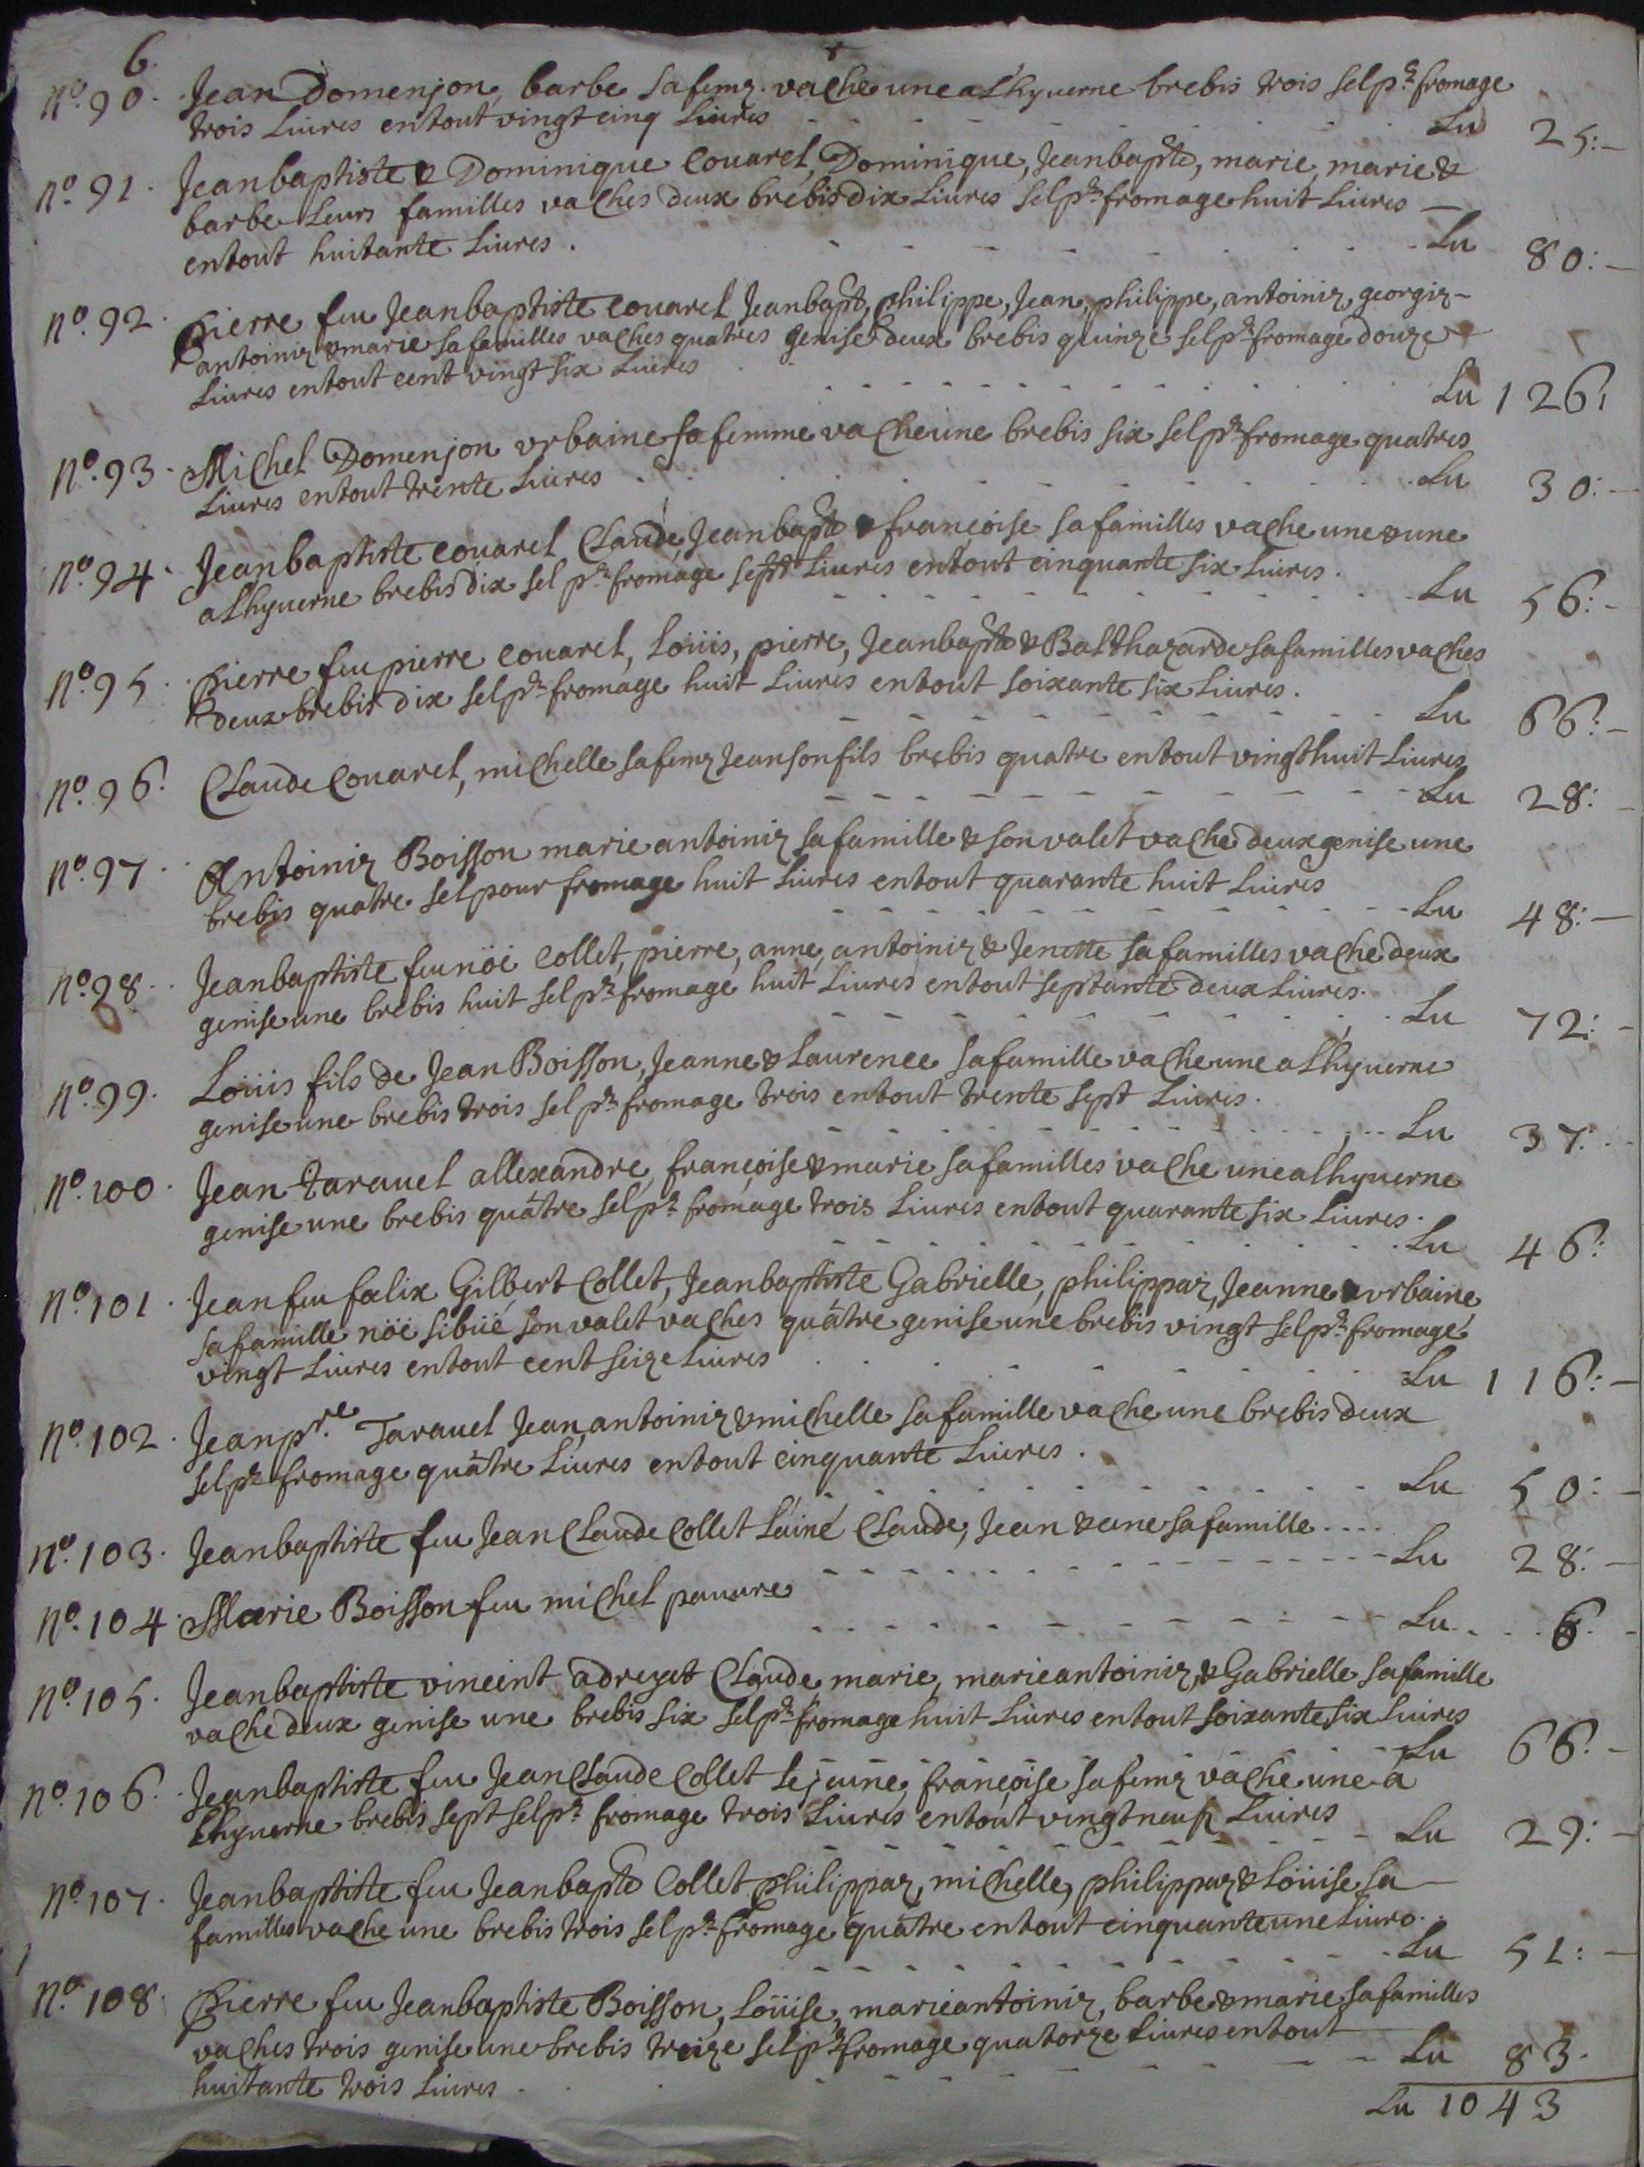 6.
N.º 90. Jean Domenjon, barbe sa fem.ͤ vache une a Lhyuerne brebis trois sel p.ͬ fromage
trois Liures en tout vingt cinq Liures Lu 25:-
N.º 91. Jean baptiste & Dominique Couarel, Dominique, Jean bapte, marie, marie &
barbe Leurs familles vaches deux brebis dix Liures sel p.ͬ fromage huit Liures
en tout huitante Liures. Lu 80:-
N.º 92. Pierre feu Jean baptiste couarel Jean bapt, philippe, Jean, philippe, antoinie, georgie
antoinie & marie sa familles vaches quatres genise deux brebis quinze sel p.ͬ fromage douze
Liures en tout cent vingt six Liures Lu 126:
N.º 93. Michel Domenjon vrbaine sa femme vache une brebis six sel p.ͬ fromage quatres
Liures en tout trente Liures Lu 30:-
N.º 94. Jean baptiste couarel Claude, Jean bapte & francoise sa familles vache une & une
a Lhyuerne brebis dix sel p.ͬ fromage sept Liures en tout cinquante six Liures. Lu 56:-
N.º 95. Pierre feu pierre couarel, Loüis, pierre, Jean bapte & Balthazarde sa familles vaches
deux brebis dix sel p.ͬ fromage huit Liures en tout soixante six Liures. Lu 66:-
N.º 96. Claude Couarel, michelle sa feme Jean son fils brebis quatre en tout vingt huit Liures
Lu 28:
N.º 97. Antoinie Boisson marie antoinie sa famille & son valet vache deux genise une
brebis quatre sel pour fromage huit Liures en tout quarante huit Liures Lu 48:-
N.º 98. Jean baptiste feu nöé Collet, pierre, anne, antoinie & Jenette sa familles vache deux
genise une brebis huit sel p.ͬ fromage huit Liures en tout septante deux Liures. Lu 72:-
N.º 99. Loüis fils de Jean Boisson, Jeanne & Laurence sa famille vache une a Lhyuerne
genise une brebis trois sel p.ͬ fromage trois en tout trente sept Liures. Lu 37:
N.º 100. Jean tarauel allexandre, françoise & marie sa familles vache une a lhyuerne
genise une brebis quatre sel p.ͬ fromage trois Liures en tout quarante six Liures. Lu 46:
N.º 101. Jean feu falix Gilbert Collet, Jean baptiste Gabrielle, philippaz, Jeanne & vrbaine
sa famille nöé sibüé son valet vaches quatre genise une brebis vingt sel p.ͬ fromage
vingt Liures en tout cent seize Liures Lu 116:-
N.º 102. Jean p.re Tarauel Jean, antoinie & michelle sa famille vache une brebis deux
sel p.ͬ fromage quatre Liures en tout cinquante Liures. Lu 50:-
N.º 103. Jean baptiste feu Jean Claude Collet L'ainé Claude, Jean & ane sa famille Lu 28:-
N.º 104. Marie Boisson feu michel pauure Lu 6:-
N.º 105. Jean baptiste vincent adreyet Claude marie, marie antoinie, & Gabrielle sa famille
vache deux genise une brebis six sel p.ͬ fromage huit Liures en tout soixante six Liures
Lu 66:-
N.º 106. Jean baptiste feu Jean Claude Collet Le jeune, françoise sa feme vache une a
Lhyuerne brebis sept sel p.ͬ fromage trois Liures en tout vingt neuf Liures Lu 29:-
N.º 107. Jean baptiste feu Jean bapte Collet philippaz, michelle, philippaz & Loüise sa
familles vache une brebis trois sel p.ͬ fromage quatre en tout cinquante une Liure. Lu 51:-
N.º 108. Pierre feu Jean baptiste Boisson, Loüise, marie antoinie, barbe & marie sa familles
vaches trois genise une brebis treize sel p.ͬ fromage quatorze Liures en tout
huitante trois Liures Lu 83.
Lu 1043